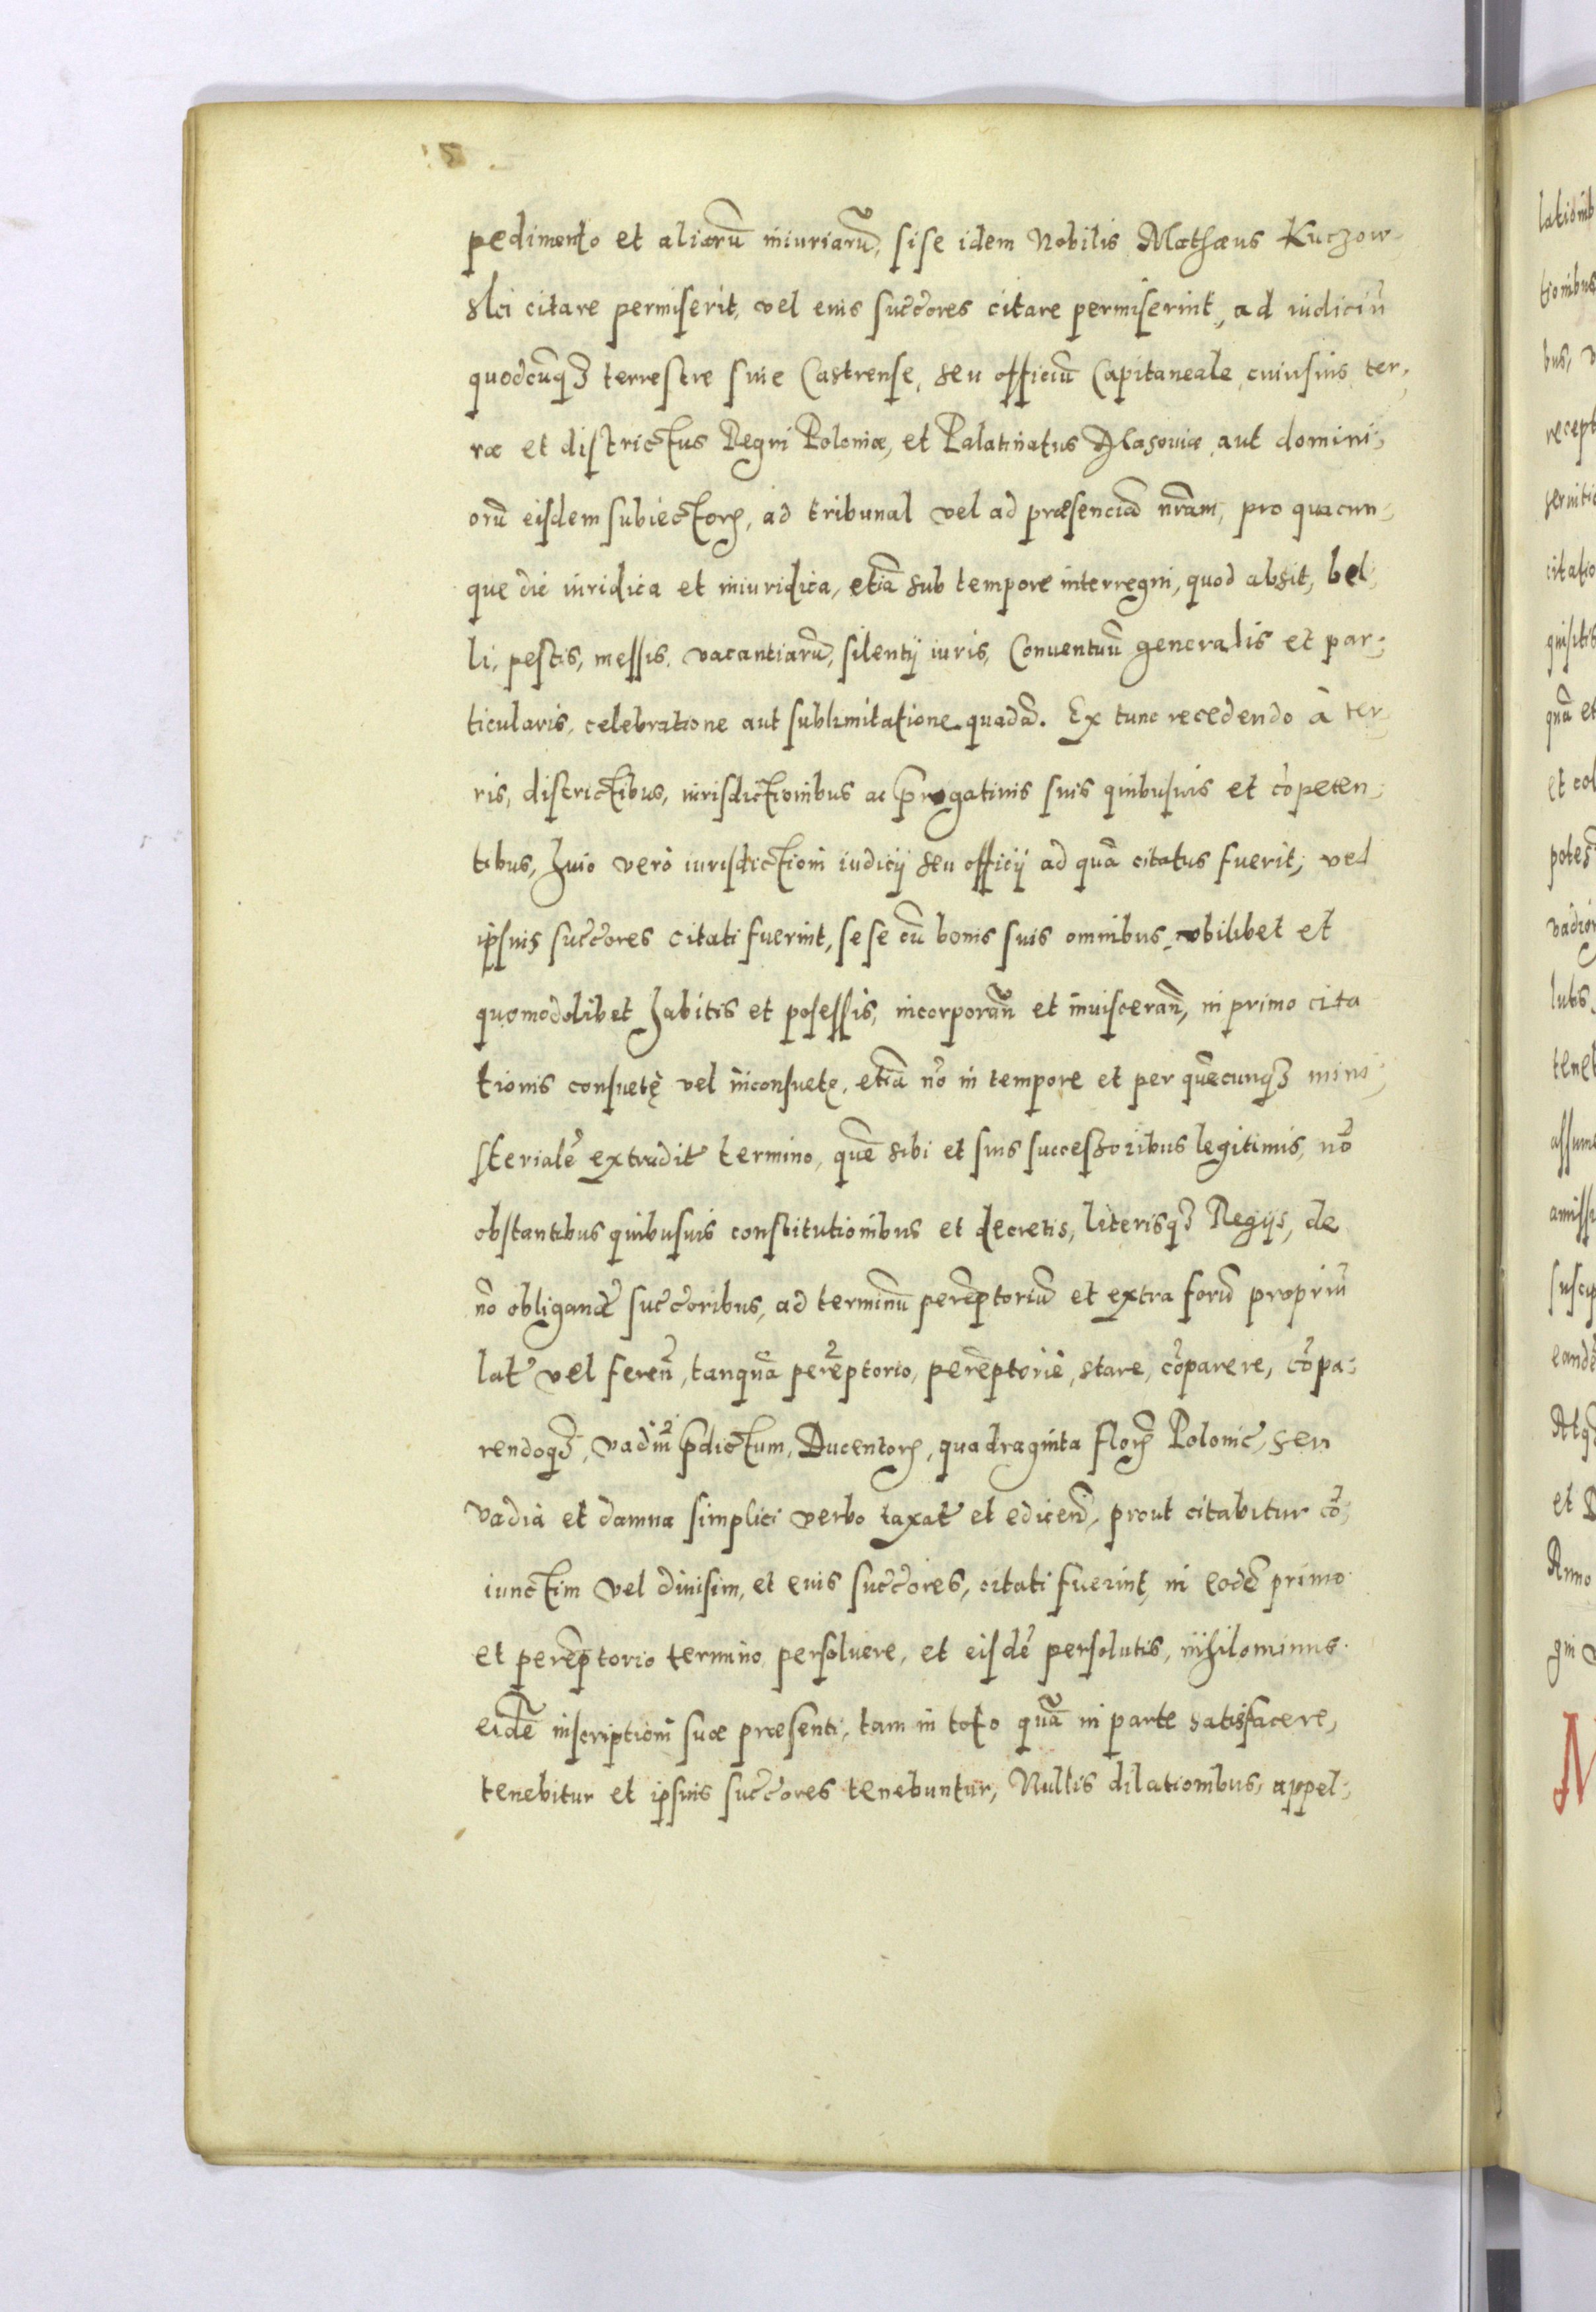 pedimento et aliarū iniuriarū, si se idem Nobilis Mathæus Kuczow-
ski citare permiserit, vel eius succ̄ores citare permiserint, ad iudiciū
quodcūq3 terrestre siue Castrense, seu officiū Capitaneale, cuiusuis ter-
ræ et districtus Regni Poloniæ, et Palatinatus Masouiæ, aut domini-
orū eisdem subiectorꝝ, ad tribunal vel ad præsenciā nr̄am, pro quacun-
que die iuridica et iniuridica, etiā sub tempore interregni, quod absit, bel-
li, pestis, messis, vacantiarū, silentij iuris, Conuentuū generalis et par-
ticularis, celebratione aut sublimitatione quadā. Ex tunc recedendo à ter-
ris, districtibus, iurisdictionibus ac prærogatiuis suis quibusuis et cōpeten-
tibus, huic verò iurisdictioni iudicij seu officij ad quā citatus fuerit, vel
ipsius succ̄ores citati fuerint, se se cū bonis suis omnibus, vbilibet et
quomodolibet habitis et posessis, incorporan̄ et inuisceran̄, in primo cita
tionis consuetę vel inconsuetę, etiā nō in tempore et per quēcunq3 mini-
sterialē extradit̄ termino, quē sibi et suis successoribus legitimis, nō
obstantibus quibusuis constitutionibus et decretis, literisq3 Regijs, de
nō obligand̄ succ̄oribus, ad terminū perēptoriū et extra forū propriū
lat̄ vel feren̄, tanquā perēptorio, perēptoriè, stare, cōparere, cōpa-
rendoq3, vadiū p̄dictum, Ducentorꝝ, quadraginta florꝝ Polonic̄, seu
vadia et damna simplici verbo taxat̄ et edicend̄, prout citabitur cō-
iunctim vel diuisim, et eius succ̄ores, citati fuerint, in eodē primo
et perēptorio termino persoluere, et eisdē persolutis, nihilominus
eidē inscriptioni suæ præsenti, tam in toto quā in parte satisfacere,
tenebitur et ipsius succ̄ores tenebuntur, Nullis dilationibus, appel-